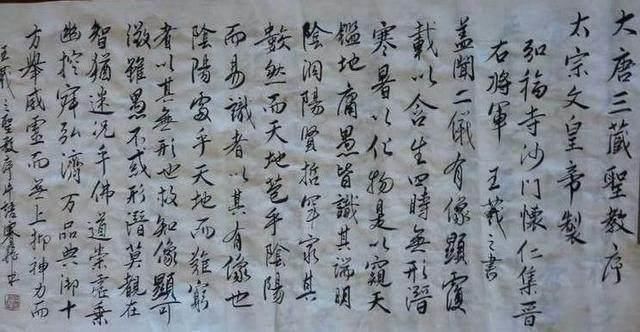 大唐三藏聖教序
太宗文皇帝製
弘福寺沙門懷仁集晉
右將軍王羲之書
蓋聞二儀有像顯覆
載以含生四時無形潛
寒暑以化物是以窺天
鑑地庸愚皆識其端明
陰洞陽賢哲罕窮其
數然而天地苞乎陰陽
而易識者以其有像也
陰陽處乎天地而難窮
者以其無形也故知像顯可
徵雖愚不惑形潛莫覩在
智猶迷況乎佛道崇虛乘
幽控寂弘濟万品典御十
方舉威靈而無上抑神力而
王羲之聖教序